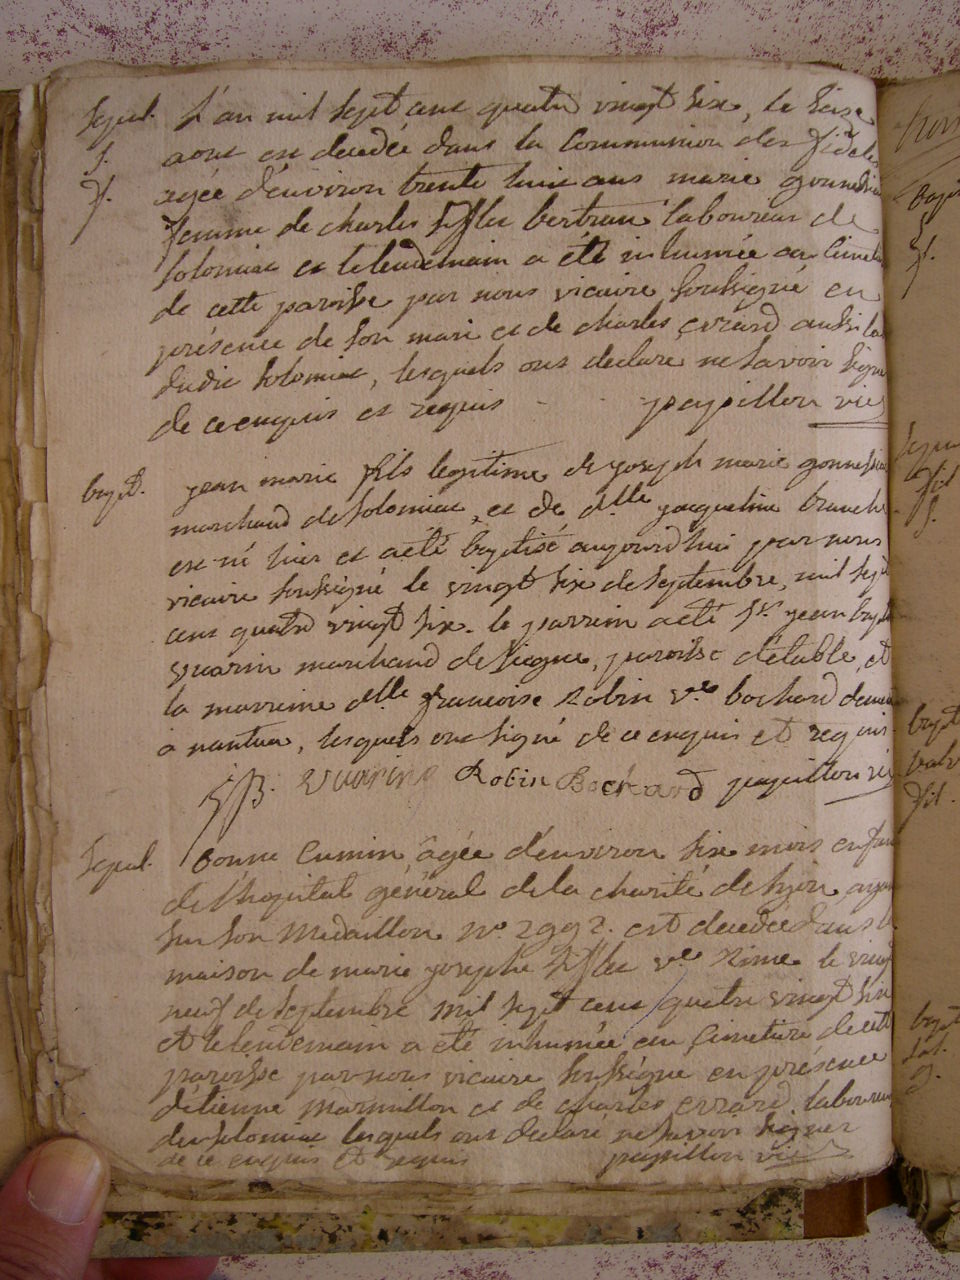 Sepul. L'an mil sept cent quatre vingt six, le seize
aout est decedée dans la Communion des fideles
agée d'environ trente huit ans marie gonnessia
femme de charles bertran laboureur de
solomiac et le lendemain a été inhumée au Cimet
de cette paroisse par nous vicaire soussigné en
présence de son mari et de charles evrard aussi la
dudit solomiac, lesquels ont declaré ne savoir signer
de ce enquis et requis papillon vic
bapt. jean marie fils legitime de joseph marie gonnessia
marchand de solomiac, et de dlle jacqueline branche
est né hier et a été baptisé aujourd'hui par nous
vicaire soussigné le vingt six de septembre, mil sept
cent quatre vingt six. le parrein a été sr jean bapt
vuarin marchand de, paroisse d'étable, et
la marreine dlle francoise Robin ve bochard demeu
a nantua, lesquels ont signé de ce enquis et requis
JB. vuarin Robin Bochard papillon vic
Sepul. bonne Cumin âgée d'environ six mois enfan
de l'hopital général de la charité de lyon, ayan
sur son Medaillon No 2992. est decedée dans la
maison de marie josephe ve le vingt
neuf de septembre mil sept cent quatre vingt six
et le lendemain a été inhumée au Cimetiere de cette
paroisse par nous vicaire soussigné en présence
d'étienne marmillon et de charles evrard laboureur
de solomiac lesquels ont declaré ne savoir signer
de ce enquis et requis papillon vic